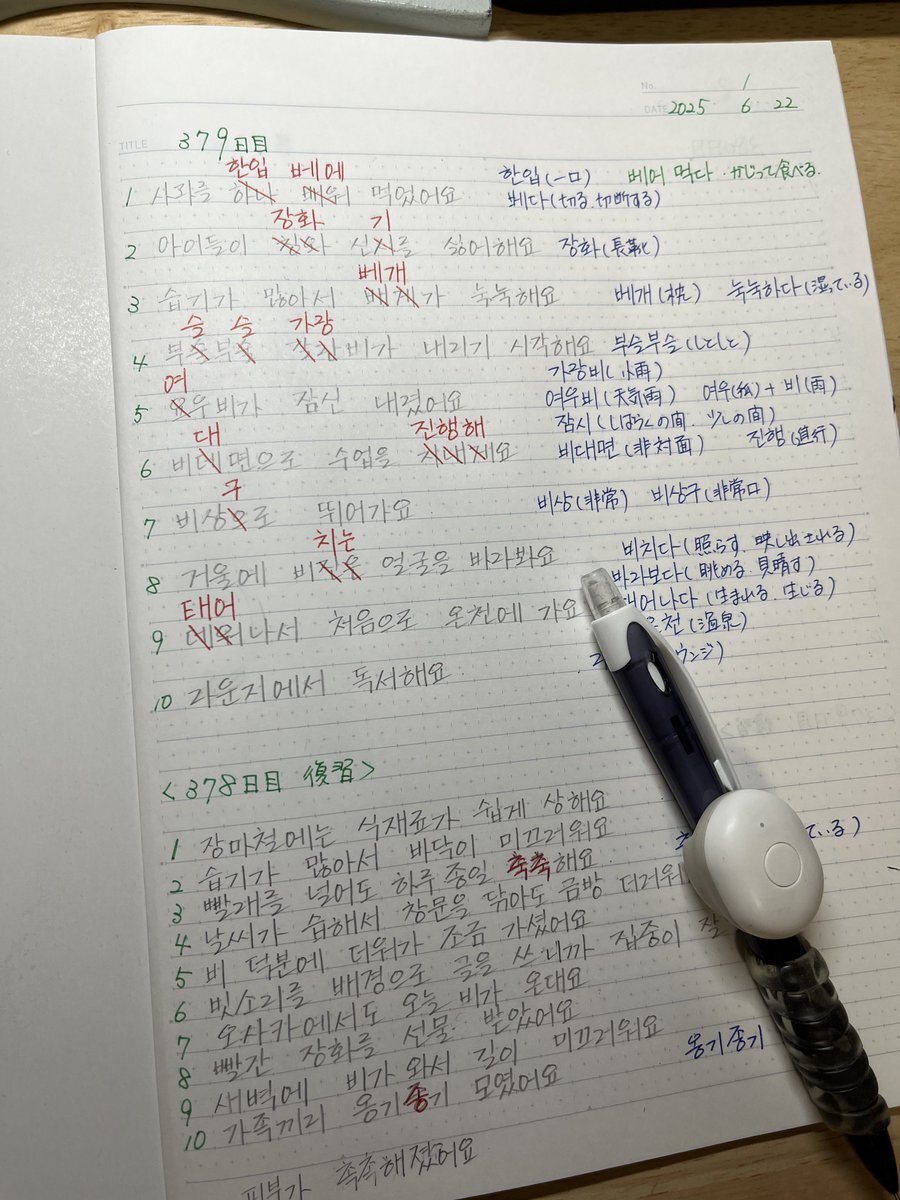 No. 1
DATE 2025 6 22
TITLE 379日目
한입 베어
1 사과를 하나 먹었어요 한입(一口) 베어 먹다 かじって食べる
베다(切る、切断する)
장화 기
2 아이들이 신시를 싫어해요 장화(長靴)
베개
3 습기가 많아서 가 눅눅해요 베개(枕) 눅눅하다(湿っている)
슬 슬 가랑
4 부 부 비가 내리기 시작해요 부슬부슬(しとしと)
여 가랑비(小雨)
5 요우비가 잠신 내렸어요 여우비(天気雨) 여우(狐)+비(雨)
대 진행해 잠시(しばらくの間、少しの間)
6 비데면으로 수업을 요 비대면(非対面) 진행(進行)
구
7 비상으로 뛰어가요 비상(非常) 비상구(非常口)
치는
8 거울에 비 얼굴을 바라봐요 비치다(照らす、映し出される)
바라보다(眺める、見晴す)
태어
9 데워나서 처음으로 온천에 가요 태어나다(生まれる、生じる)
온천(温泉)
10 라운지에서 독서해요 ウンジ)
<378日目 復習>
1 장마철에는 식재료가 쉽게 상해요
2 습기가 많아서 바닥이 미끄러워요 ている)
3 빨래를 널어도 하루 종일 축축해요
4 날씨가 습해서 창문을 닦아도 금방 더러워
5 비 덕분에 더위가 조금 가셨어요
6 빗소리를 배경으로 글을 쓰니까 집중이 잘
7 오사카에서도 오늘 비가 온대요
8 빨간 장화를 선물 받았어요
9 새벽에 비가 와서 길이 미끄러워요
10 가족끼리 옹기종기 모였어요 옹기종기
피부가 촉촉해졌어요